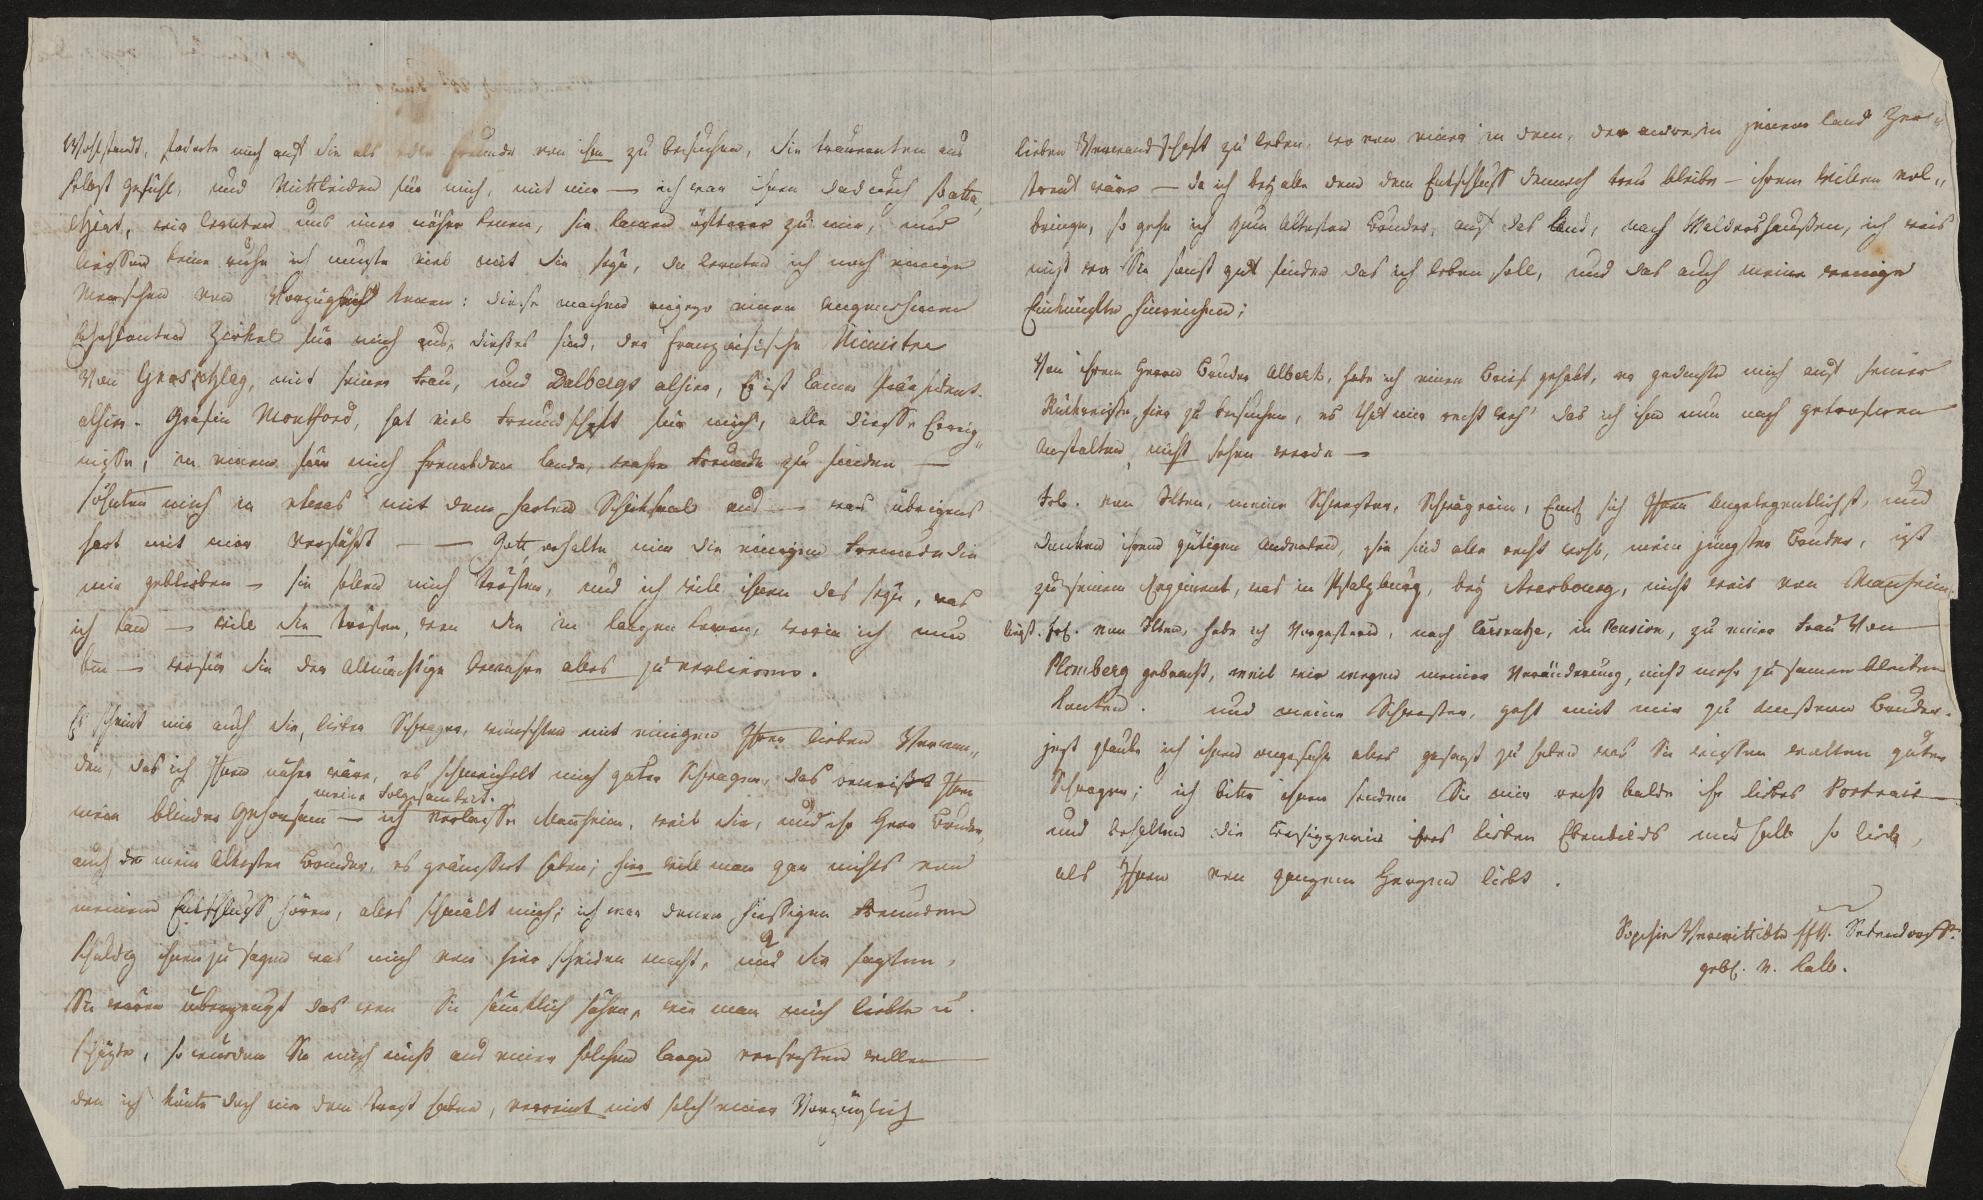 Wohlstandt, foderte mich auf die als edle freunde von ihm zu besuchen, die traurenten aus
selbst gefühl, und Mittleiden für mich, mit mir — ich war ihnen dadurch
wir lernten uns imer näher kenen, sie kamen öffterer zu mir, und
liessen keine ruhe ich muste viel mit sie seyn, da lernten ich noch einige
Menschen von Vorzüglich kenen: diese machen einen angenehmen
Zirkel für mich aus, dießes sind, der französische Ministre
Von Groschlag, mit seiner frau, und Dalbergs alhier, Er ist Camer Präsident.
alhier. Gräfin Montford, hat viel freundschaft für mich, alle diesse Ereig„
nisse, in einem für mich frembden lande, wahre freunde zu finden —
söhnten mich in etwas mit dem harten Schiksaal aus — was übrigens
hart mit mir verfährt — — Gott erhalte mir die einzigen freunde die
mir geblieben — sie sollen mich trösten, und ich will ihnen das seyn, was
ich kan — will die trösten, wen die in lagen komen, worin ich nun
bin — wofür die der Allmächtige bewahre alles zu verlieren.
Es scheint mir auch Sie, lieber Schwager, wünschten mit einigen Ihrer lieben Verwan„
den, das ich Ihnen näher wäre, es schmeichelt mich guter Schwager, das beweißt Ihnen
meine folgsamkeit.
mein blinder Gehorsam — ich verlasse Manheim, weil Sie, und ihr Herr Bruder,
auch da mein Altester Bruder, es geäussert haben; hier will man gar nichts von
meinem Entschluss hören, alles schmält mich; ich war denen hiessigen freunden
schuldig ihnen zu sagen was mich von hier scheiden macht, und Sie sagten,
Sie wären überzeugt das wen Sie sämtlich sähen, wie man mich liebte u.
schäzte, so würden Sie mich nicht aus einer solchen lagen versezen wollen —
den ich könte doch nur den trost haben, vereint mit solch' einer Vorzüglich
lieben Verwandschaft zu leben, wo von einer in dem, der andre in jenem land Zer„
streut wäre — da ich bey alle dem dem Entschluss dennoch treu bleibe — ihren willen vol„
bringe, so gehe ich zum Altesten Bruder, auf das land, nach Waldershaußen, ich weis
nicht wo Sie sonst gut finden das ich leben soll, und das auch meine wenige
Einkünfte hinreichen;
Von ihrem Herrn Bruder Albert, habe ich einen Brief gehabt, er gedachte mich auf seiner
Rükreisse, hier zu besuchen, es thut mir recht weh' das ich ihn nun nach getrofnen
Anstalten, nicht sehen werde —
frl. von Ilten, meine Schwester, Schwägerin, Empf sich Ihnen Angelegentlichst, und
danken ihrem gütigen Andenken, sie sind alle recht wohl, mein jüngster Bruder, ist
zu seinem Regiment, was in Pfalzburg, bey Strasbourg, nicht weit von Manheim
liegt. frl. von Ilten, habe ich Vorgestern, nach Carsruhe, in Pension, zu einer Frau Von
Plomberg gebracht, weil wir wegen meiner Veränderung, nicht mehr zusamen bleiben
konten. und meine Schwester, geht mit mir zu unserem Bruder.
jezt glaube ich ihnen ungefehr alles gesagt zu haben was Sie wissen wolten guter
Schwager; ich bitte ihnen senden Sie mir recht balde ihr liebes Portrait —
und behalten die Besizzerin ihres lieben Ebenbilds nur halb so lieb,
als Ihnen von ganzem Herzen liebt.
Sophie Verwittibte Seckendorff.
gebl. v. Kalb.